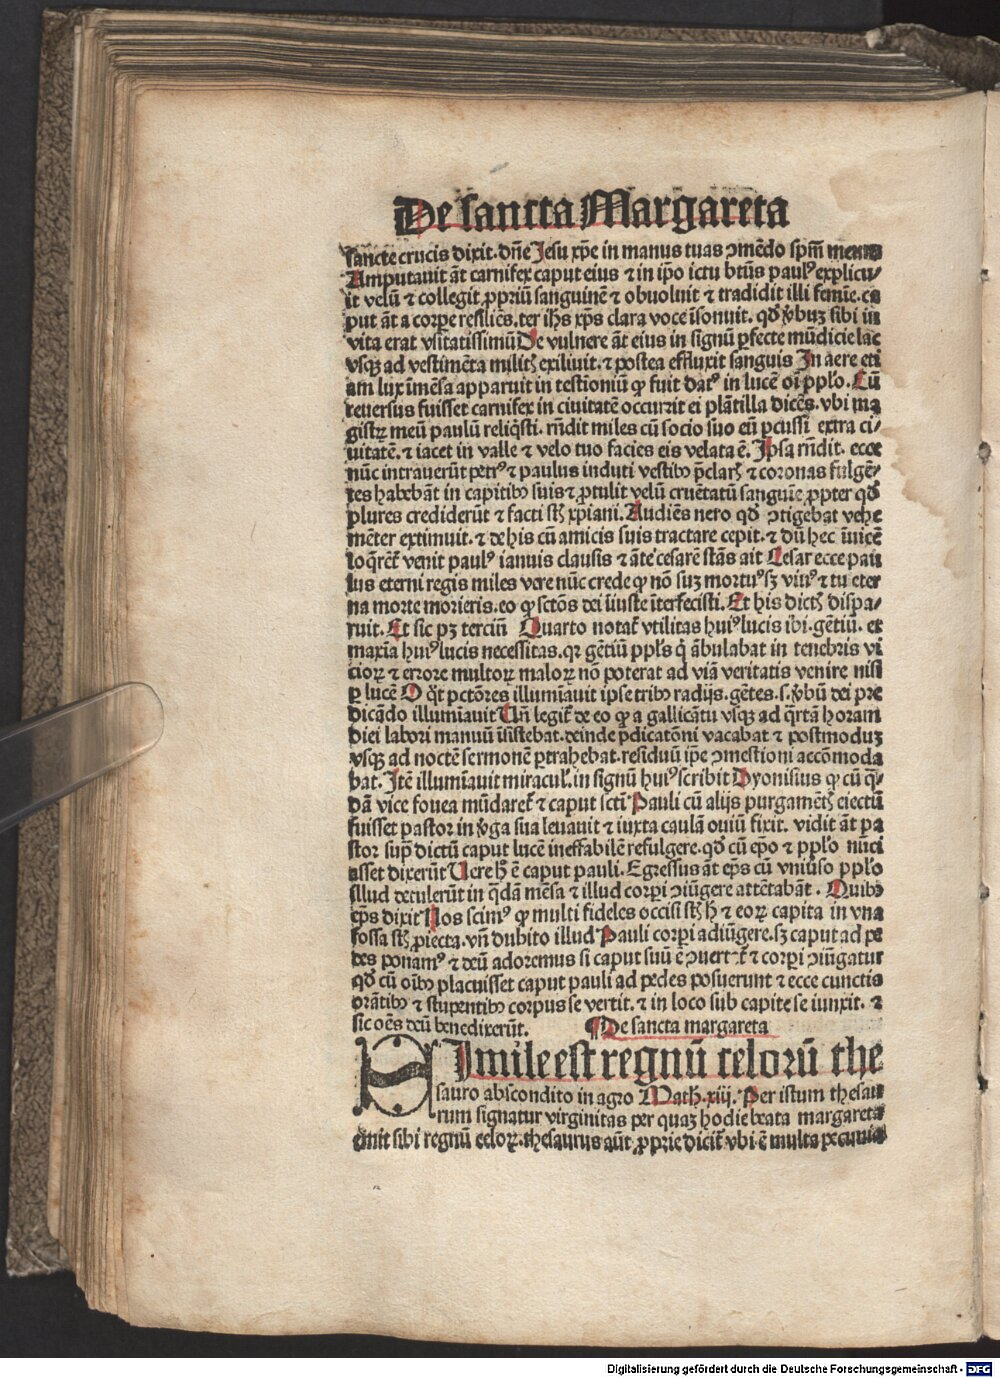 De sancta Margareta
sancte crucis dixit. dñe Jesu xp̄e in manus tuas ꝯmēdo spm̄ meum
Amputavit āt carnifex caput eius ⁊ in ip̄o ictu btūs paulꝰ explicu⸗
it velū ⁊ collegit ꝓpriū sanguinē ⁊ obuoluit ⁊ tradidit illi femīe. ca
put āt a corpe resiliēs. ter ih̄s xp̄s clara voce īsonuit. qd̄ v̄buꝫ sibi in
vita erat vsitatissimū De vulnere āt eius in signū ꝑfecte mūdicie lac
vsqꝫ ad vestimēta militꝭ exiliuit. ⁊ postea effluxit sanguis In aere eti
am lux īmēsa apparuit in testioniū ꝙ fuit datꝰ in lucē oī ppl̓o. Cū
reuersus fuisset carnifex in ciuitatē occurrit ei plātilla dicēs. vbi ma
gistꝝ meū paulū reliq̄sti. rn̄dit miles cū socio suo eū ꝑcussi extra ci⸗
uitatē. ⁊ iacet in valle ⁊ velo tuo facies eiꝰ velata ē. Jpsa rn̄dit. ecce
nūc intrauerūt petrꝰ ⁊ paulus induti vestibꝰ p̄clarꝭ ⁊ coronas fulgē⸗
tes habebāt in capitibꝰ suis ⁊ ꝓtulit velū cruētatū sanguīe ꝓpter qd̄
plures crediderūt ⁊ facti st̄ xp̄iani. Audiēs nero qd̄ ꝯtigebat vehe
mēter extimuit. ⁊ de his cū amicis suis tractare cepit. ⁊ dū hec īuicē
loq̄ret̄ venit paulꝰ ianuis clausis ⁊ āte cesarē stās ait Cesar ecce pau
lus eterni regis miles vere nūc crede ꝙ nō suꝫ mortuꝰ sꝫ viuꝰ ⁊ tu eter
na morte morieris. eo ꝙ sctōs dei īiuste īterfecisti. Et his dictꝭ dispa⸗
ruit. Et sic pꝫ terciū Quarto notat̄ vtilitas huiꝰ lucis ibi. gētiū. et
maxīa huiꝰ lucis necessitas. qꝛ gētiū ppl̓s q̄ ābulabat in tenebris vi
cioꝝ ⁊ errore multoꝝ maloꝝ nō poterat ad viā veritatis venire nisi
ꝑ lucē O q̄t pctōres illumīauit ipse tribꝰ radijs. gētes. s. v̄bū dei pre
dicādo illumīauit Vn̄ legit̄ de eo ꝙ a gallicātu vsqꝫ ad q̄rtā horam
diei labori manuū īsistebat. deinde p̄dicatōni vacabat ⁊ postmoduꝫ
vsqꝫ ad noctē sermonē ꝓtrahebat. residuū ip̄e ꝯmestioni accōmoda
bat. Jtē illumīauit miracul̓. in signū huiꝰ scribit Dyonisius ꝙ cū q̄⸗
dā vice fouea mūdaret̄ ⁊ caput sctī Pauli cū alijs purgamētꝭ eiectū
fuisset pastor in v̄ga sua leuauit ⁊ iuxta caulā ouiū fixit. vidit āt pa
stor sup̄ dictū caput lucē ineffabilē refulgere. qd̄ cū ep̄o ⁊ ppl̓o nūci
asset dixerūt Uere h̄ ē caput pauli. Egressus āt ep̄s cū vniūso ppl̓o
illud detulerūt in q̄dā mēsa ⁊ illud corpi ꝯiūgere attētabāt. Quibꝰ
ep̄s dixit Nos scimꝰ ꝙ multi fideles occisi st̄ h̄ ⁊ eoꝝ capita in vna
fossa st̄ ꝓiecta. vn̄ dubito illud Pauli corpi adiūgere. sꝫ caput ad pe
des ponamꝰ ⁊ deū adoremus si caput suū ē ꝯuertat̄ ⁊ corpi ꝯiūgatur
qd̄ cū oībꝰ placuisset caput pauli ad pedes posuerunt ⁊ ecce cunctis
orātibꝰ ⁊ stupentibꝰ corpus se vertit. ⁊ in loco sub capite se iunxit. ⁊
sic oēs deū benedixerūt. ¶ De sancta margareta
SJmile est regnū celorū the
sauro abscondito in agro Math. xiij. Per istum thesau
rum signatur virginitas per quaꝫ hodie beata margareta
emit sibi regnū celoꝝ. thesaurus aūt ꝓprie dicit̄ vbi ē multa pecunia
Digitalisierung gefördert durch die Deutsche Forschungsgemeinschaft - DFG